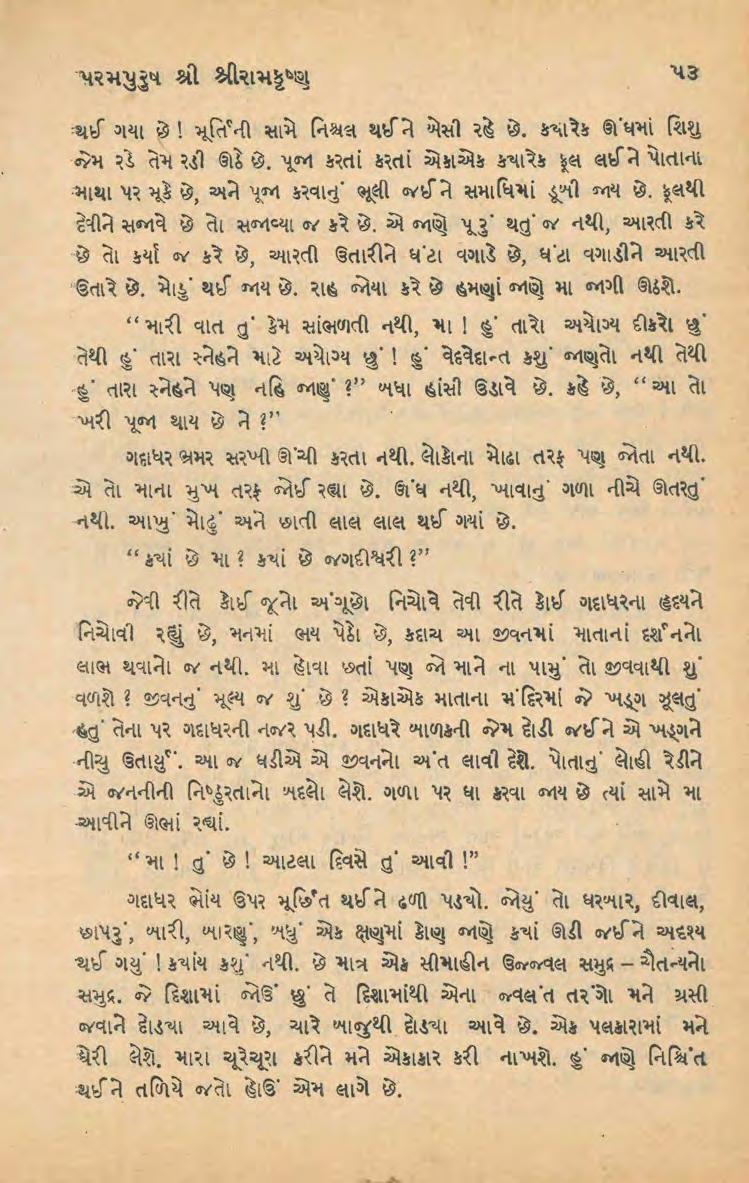 પરમપુરુષ શ્રી શ્રીરામકૃષ્ણ ૫૩
થઈ ગયા છે! મૂર્તિની સામે નિશ્ચલ થઈને બેસી રહે છે. ક્યારેક ઊંઘમાં શિશુ
જેમ રડે તેમ રડી ઊઠે છે. પૂજા કરતાં કરતાં એકાએક ક્યારેક ફૂલ લઈને પોતાના
માથા પર મૂકે છે, અને પૂજા કરવાનું ભૂલી જઈને સમાધિમાં ડૂબી જાય છે. ફૂલથી
દેવીને સજાવે છે તો સજાવ્યા જ કરે છે. એ જાણે પૂરું થતું જ નથી, આરતી કરે
છે તો કર્યા જ કરે છે, આરતી ઉતારીને ઘંટા વગાડે છે, ઘંટા વગાડીને આરતી
ઉતારે છે. મોડું થઈ જાય છે. રાહ જોયા કરે છે હમણાં જાણે મા જાગી ઊઠશે.
“મારી વાત તું કેમ સાંભળતી નથી, મા! હું તારો અયોગ્ય દીકરો છું
તેથી હું તારા સ્નેહને માટે અયોગ્ય છું! હું વેદવેદાન્ત કશું જાણતો નથી તેથી
હું તારા સ્નેહને પણ નહિ જાણું?” બધા હાંસી ઉડાવે છે. કહે છે, “આ તો
ખરી પૂજા થાય છે ને?”
ગદાધર ભ્રમર સરખી ઊંચી કરતા નથી. લોકોના મોઢા તરફ પણ જોતા નથી.
એ તો માના મુખ તરફ જોઈ રહ્યા છે. ઊંઘ નથી, ખાવાનું ગળા નીચે ઊતરતું
નથી. આખું મોઢું અને છાતી લાલ લાલ થઈ ગયાં છે.
“ક્યાં છે મા? ક્યાં છે જગદીશ્વરી?”
જેવી રીતે કોઈ જૂનો અંગૂછો નિચોવે તેવી રીતે કોઈ ગદાધરના હૃદયને
નિચોવી રહ્યું છે, મનમાં ભય પેઠો છે, કદાચ આ જીવનમાં માતાનાં દર્શનનો
લાભ થવાનો જ નથી. મા હોવા છતાં પણ જો માને ના પામું તો જીવવાથી શું
વળશે? જીવનનું મૂલ્ય જ શું છે? એકાએક માતાના મંદિરમાં જે ખડ્ગ ઝૂલતું
હતું તેના પર ગદાધરની નજર પડી. ગદાધરે બાળકની જેમ દોડી જઈને એ ખડ્ગને
નીચુ ઉતાર્યું. આ જ ઘડીએ એ જીવનનો અંત લાવી દેશે. પોતાનું લોહી રેડીને
એ જનનીની નિષ્ઠુરતાનો બદલો લેશે. ગળા પર ઘા કરવા જાય છે ત્યાં સામે મા
આવીને ઊભાં રહ્યાં.
“મા! તું છે! આટલા દિવસે તું આવી!”
ગદાધર ભોંય ઉપર મૂર્છિત થઈને ઢળી પડ્યો. જોયું તો ઘરબાર, દીવાલ,
છાપરું, બારી, બારણું, બધું એક ક્ષણમાં કોણ જાણે ક્યાં ઊડી જઈને અદૃશ્ય
થઈ ગયું! ક્યાંય કશું નથી. છે માત્ર એક સીમાહીન ઉજ્જ્વલ સમુદ્ર – ચૈતન્યનો
સમુદ્ર. જે દિશામાં જોઉં છું તે દિશામાંથી એના જ્વલંત તરંગો મને ગ્રસી
જવાને દોડ્યા આવે છે, ચારે બાજુથી દોડ્યા આવે છે. એક પલકારામાં મને
ઘેરી લેશે. મારા ચૂરેચૂરા કરીને મને એકાકાર કરી નાખશે. હું જાણે નિશ્ચિંત
થઈને તળિયે જતો હોઉં એમ લાગે છે.